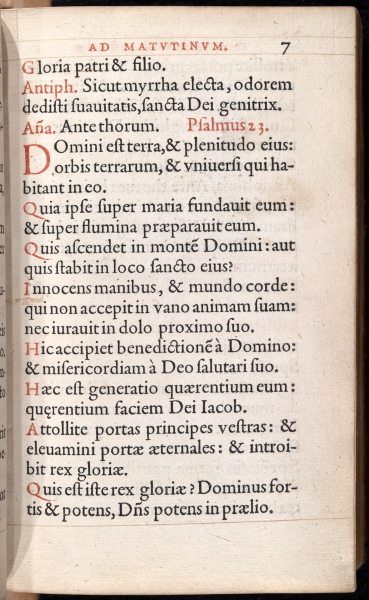 AD MATVTINVM. 7
Gloria patri & filio.
Antiph. Sicut myrrha electa, odorem
dedisti suauitatis, sancta Dei genitrix.
Aña. Ante thorum. Psalmus 23.
Domini est terra, & plenitudo eius:
orbis terrarum, & vniuersi qui ha-
bitant in eo.
Quia ipse super maria fundauit eum:
& super flumina præparauit eum.
Quis ascendet in montē Domini: aut
quis stabit in loco sancto eius?
Innocens manibus, & mundo corde:
qui non accepit in vano animam suam:
nec iurauit in dolo proximo suo.
Hic accipiet benedictionē à Domino:
& misericordiam à Deo salutari suo.
Hæc est generatio quærentium eum:
quęrentium faciem Dei Iacob.
Attollite portas principes vestras: &
eleuamini portæ æternales: & introi-
bit rex gloriæ.
Quis est iste rex gloriæ? Dominus for-
tis & potens, Dñs potens in prælio.